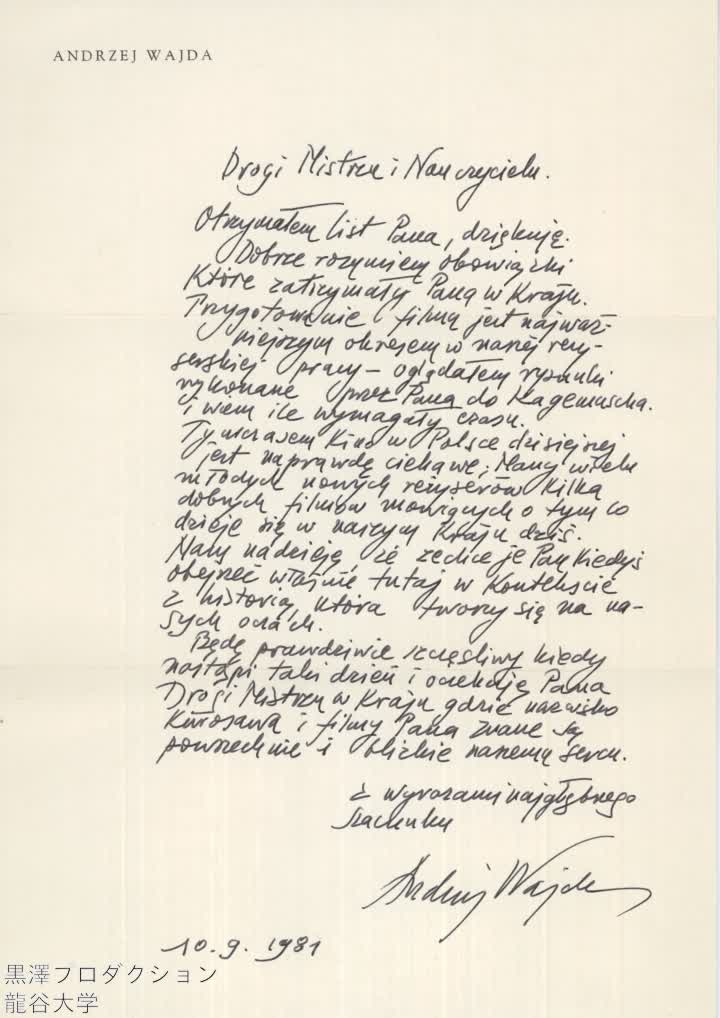 ANDRZEJ WAJDA
Drogi Mistrzu i Nauczycielu.
Otrzymałem list Pana, dziękuję.
Dobrze rozumiem obowiązki
które zatrzymały Pana w Kraju.
Przygotowanie filmu jest najważ-
niejszym okresem w naszej reży-
serskiej pracy – oglądałem rysunki
wykonane przez Pana do Kagemuscha.
i wiem ile wymagały czasu.
Tymczasem Kino w Polsce dzisiejszej
jest naprawdę ciekawe; Mamy wielu
młodych nowych reżyserów kilka
dobrych filmów mówiących o tym co
dzieje się w naszym Kraju dziś.
Mam nadzieję, że zechce je Pan Kiedyś
obejrzeć właśnie tutaj w Kontekście
z historią, która tworzy się na na-
szych oczach.
Będę prawdziwie szczęśliwy kiedy
nastąpi taki dzień i oczekuję Pana
Drogi Mistrzu w Kraju gdzie nazwisko
Kurosawa i filmy Pana znane są
powszechnie i bliskie naszemu sercu.
z wyrazami najgłębszego
szacunku
Andrzej Wajda
10.9.1981
黒澤プロダクション
龍谷大学